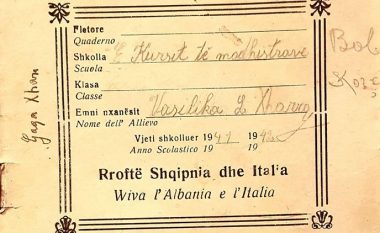 Fletore
Quaderno
Shkolla E Kurset të modhistrave
Scuola
Klasa
Classe
Emni nxanësit Vasilika L Xharxho
Nome dell' Allievo
Vjeti shkolluer 1941 1942
Anno Scolastico 19 19
Rroftë Shqipnia dhe Italia
Wiva l'Albania e l'Italia
Gaqa Xhaxh
Bob